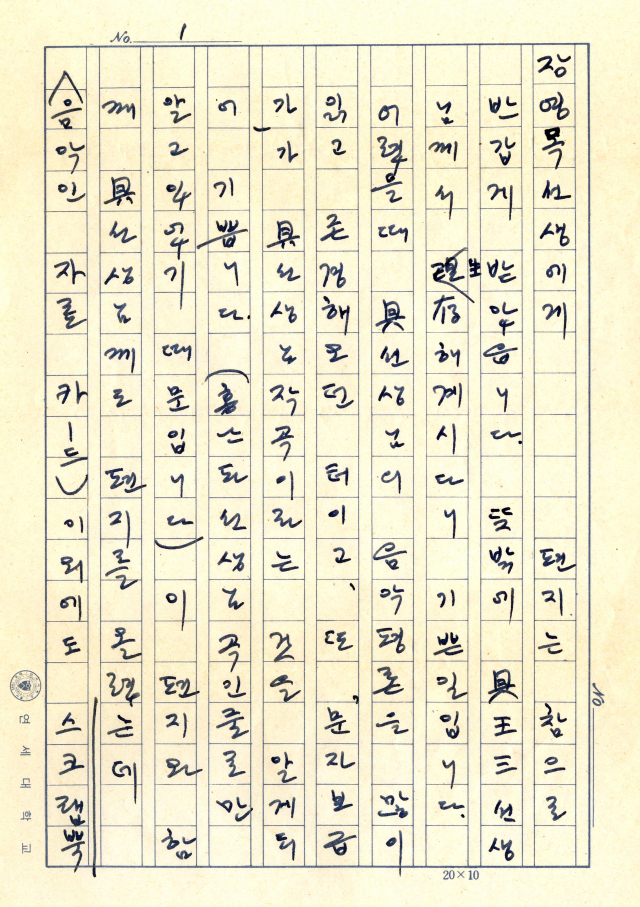 No. 1
장영목 선생에게 편지는 참으로
반갑게 받았읍니다. 뜻밖에 具王三 선생
님께서 生存해 계시다니 기쁜 일입니다.
어렸을 때 具선생님의 음악평론을 많이
읽고 존경해 오던 터이고, 또, 문자보급
가-가 具선생님 작곡이라는 것을 알게 되
어 기쁩니다. (홍난파 선생님 곡인 줄로만
알고 있었기 때문입니다) 이 편지와 함
께 具선생님께도 편지를 올렸는데
<음악인 자료 카-드> 이외에도 스크랩북
No.
연세대학교
20×10